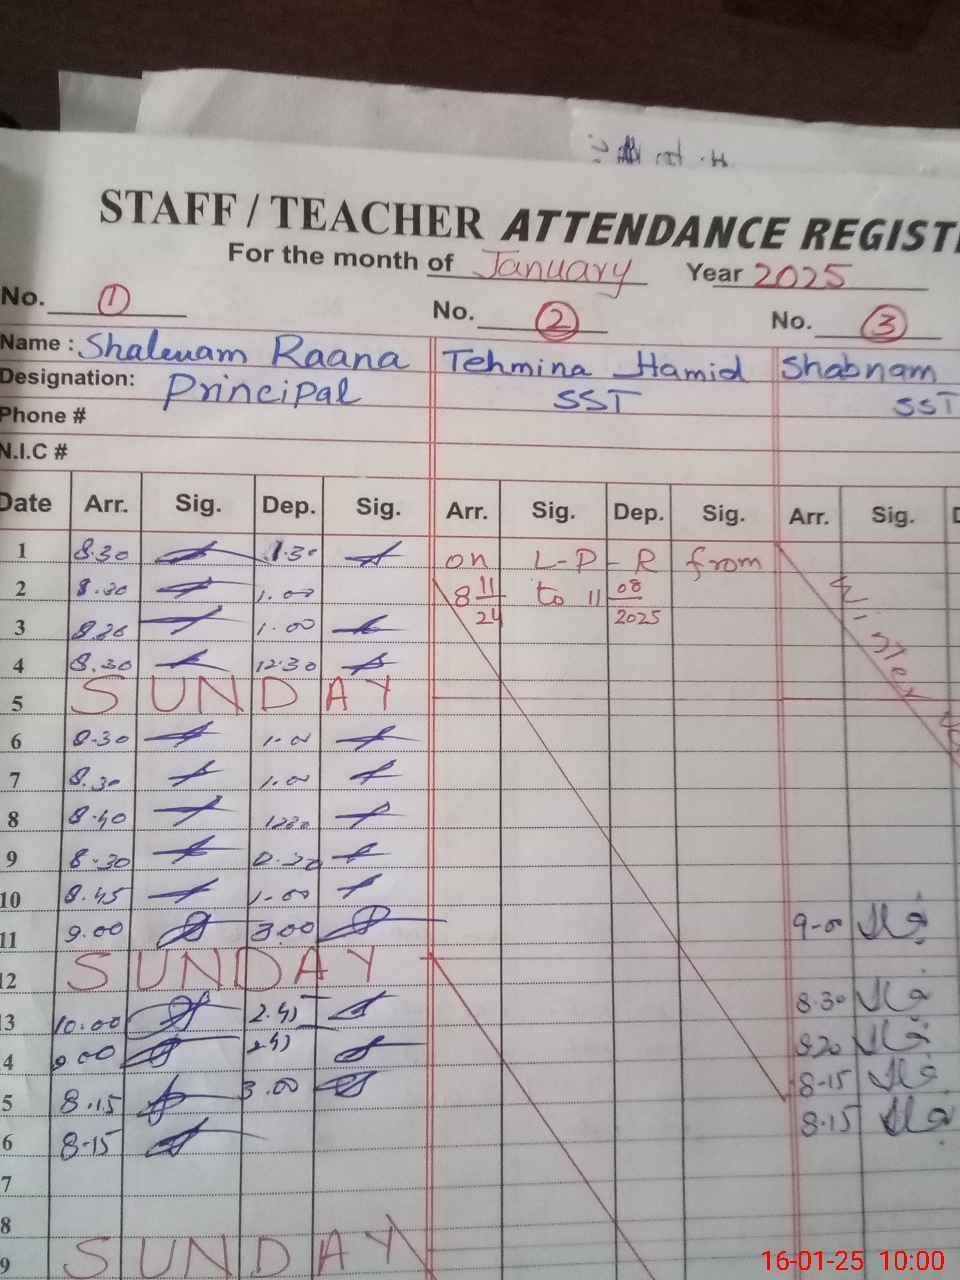 STAFF / TEACHER ATTENDANCE REGIST
For the month of January Year 2025
No. 1 No. 2 No. 3
Name : Raana Tehmina Hamid Shabnam
Designation: Principal SST SST
Phone #
N.I.C #
Date Arr. Sig. Dep. Sig. Arr. Sig. Dep. Sig. Arr. Sig. D
1 8.30 1.30 on L-P-R from
2 8.30 1.00 8 11/24 to 11 08/2025
3 8.30 1.00
4 8.30 12.30
5 SUNDAY
6 8.30 1.00
7 8.30 1.00
8 8.40 1230
9 8.30
10 8.45 1.00
11 9.00 3.00 9-00
12 SUNDAY
3 10.00 2.45 8.30
4 9.00 2.45
5 8.15 3.00 8-15
6 8-15 8.15
7
8
9 SUNDAY
16-01-25 10:00